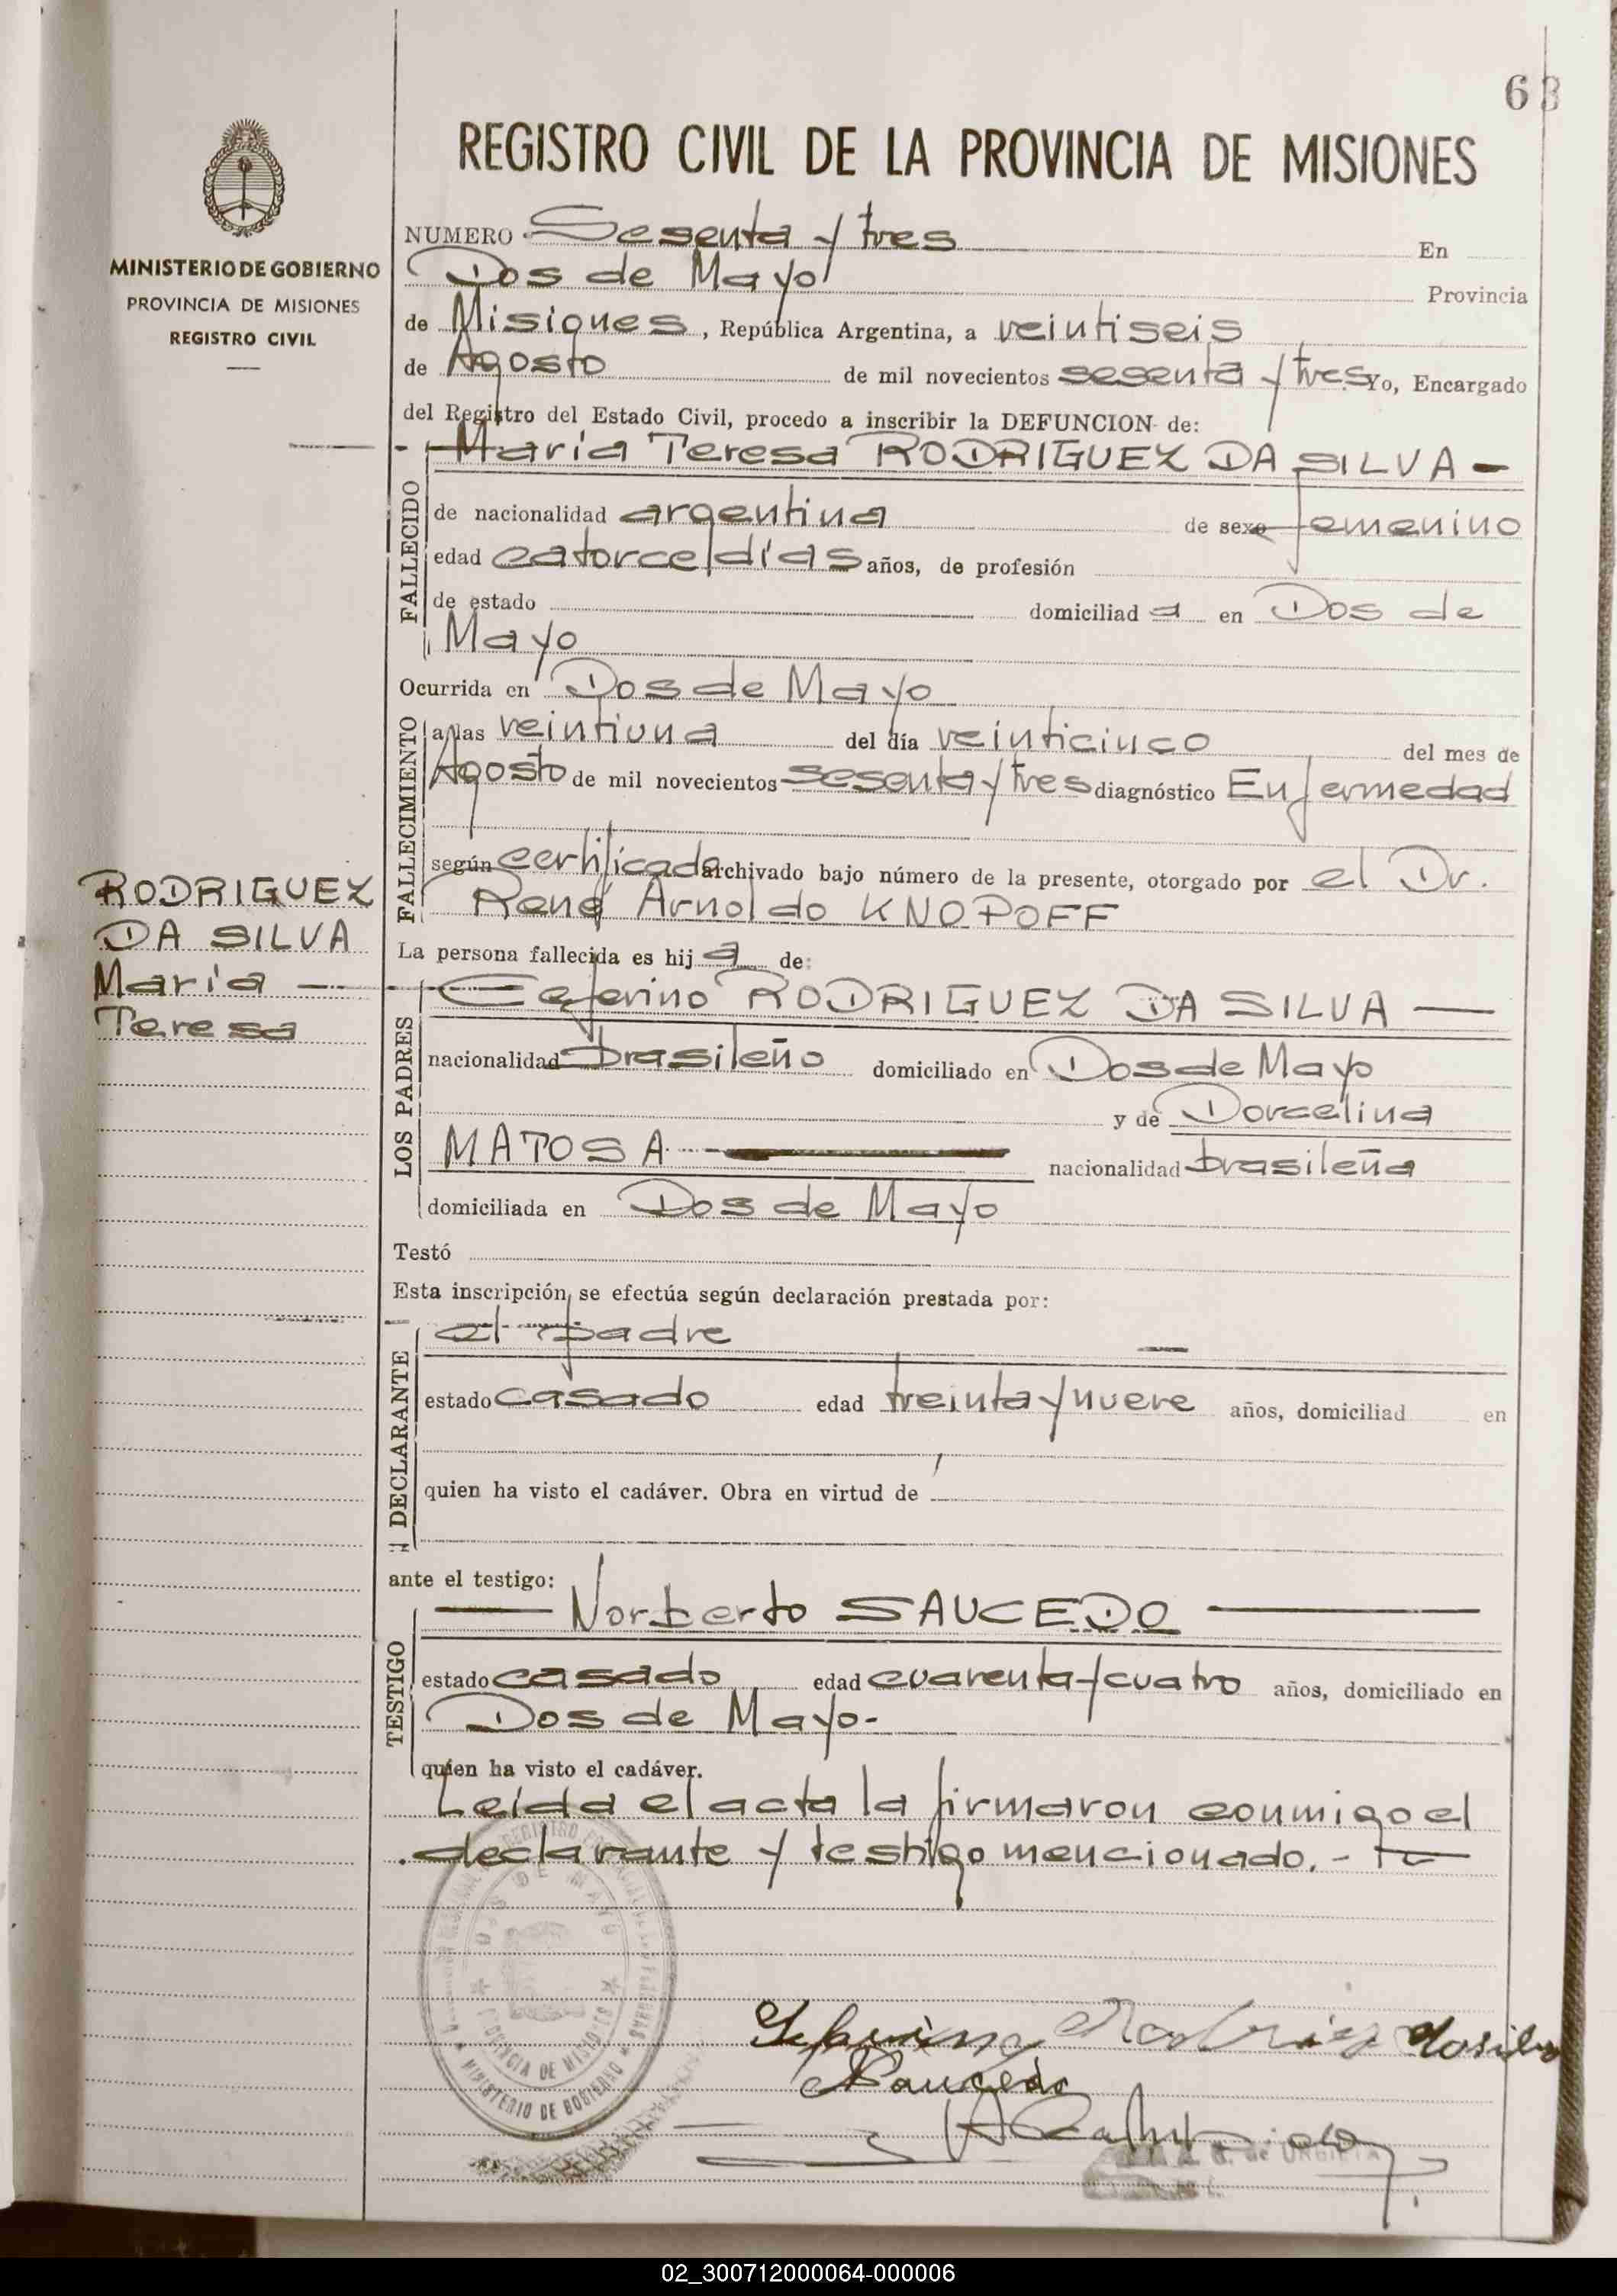 63
REGISTRO CIVIL DE LA PROVINCIA DE MISIONES
MINISTERIO DE GOBIERNO
PROVINCIA DE MISIONES
REGISTRO CIVIL
NUMERO Sesenta y tres En
Dos de Mayo Provincia
de Misiones, República Argentina, a veintiseis
de Agosto de mil novecientos sesenta y tres Yo, Encargado
del Registro del Estado Civil, procedo a inscribir la DEFUNCION de:
María Teresa RODRIGUEZ DA SILVA -
FALLECIDO
de nacionalidad argentina de sexo femenino
edad catorce días años, de profesión
de estado domiciliad a en Dos de
Mayo
Ocurrida en Dos de Mayo
FALLECIMIENTO
a las veintiuna del día veinticinco del mes de
Agosto de mil novecientos sesenta y tres diagnóstico Enfermedad
según certificado archivado bajo número de la presente, otorgado por el Dr.
René Arnoldo KNOPOFF
RODRIGUEZ
DA SILVA
María
Teresa
La persona fallecida es hij a de:
Ceferino RODRIGUEZ DA SILVA —
LOS PADRES
nacionalidad brasileño domiciliado en Dos de Mayo
y de Dorcelina
MATOSA nacionalidad brasileña
domiciliada en Dos de Mayo
Testó
Esta inscripción se efectúa según declaración prestada por:
el padre
DECLARANTE
estado casado edad treinta y nueve años, domiciliad en
quien ha visto el cadáver. Obra en virtud de
ante el testigo:
— Norberto SAUCEDO —
TESTIGO
estado casado edad cuarenta y cuatro años, domiciliado en
Dos de Mayo.-
quien ha visto el cadáver.
Leída el acta la firmaron conmigo el
declarante y testigo mencionado. -
DOS DE MAYO
PROVINCIA DE MISIONES
MINISTERIO DE GOBIERNO
Saucedo
02_300712000064-000006